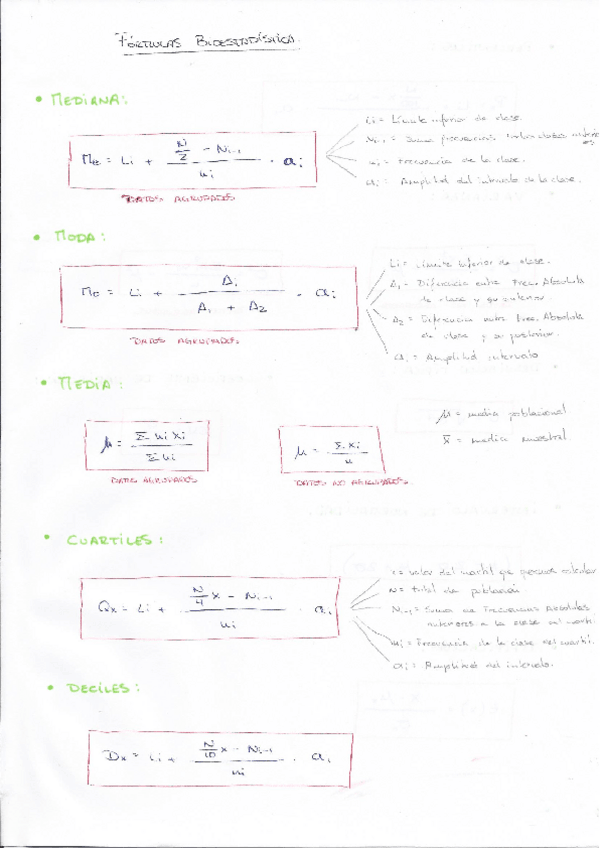 FÓRMULAS BIOESTADÍSTICA.
• MEDIANA:
Me = Li + (N/2 - Ni-1)/ni · ai
DATOS AGRUPADOS
Li = Límite inferior de clase.
Ni-1 = Suma frecuencias
ni = Frecuencia de la clase.
ai = Amplitud del intervalo de la clase.
• MODA:
Mo = Li + Δ1/(Δ1 + Δ2) · ai
DATOS AGRUPADOS
Li = Límite inferior de clase.
Δ1 = Diferencia entre Frec. Absoluta
de clase y su anterior.
Δ2 = Diferencia entre Frec. Absoluta
de clase y su posterior.
ai = Amplitud intervalo
• MEDIA:
μ = Σ ni xi / Σ ni
DATOS AGRUPADOS
μ = Σ xi / n
DATOS NO AGRUPADOS.
μ = media poblacional
x̄ = media muestral.
• CUARTILES:
Qx = Li + (N/4 x - Ni-1)/ni · ai
x = valor del cuartil que calcular
N = total de población
Ni-1 = Suma de Frecuencias Absolutas
anteriores a la clase del cuartil.
ni = Frecuencia de la clase del cuartil.
ai = Amplitud del intervalo.
• DECILES:
Dx = Li + (N/10 x - Ni-1)/ni · ai